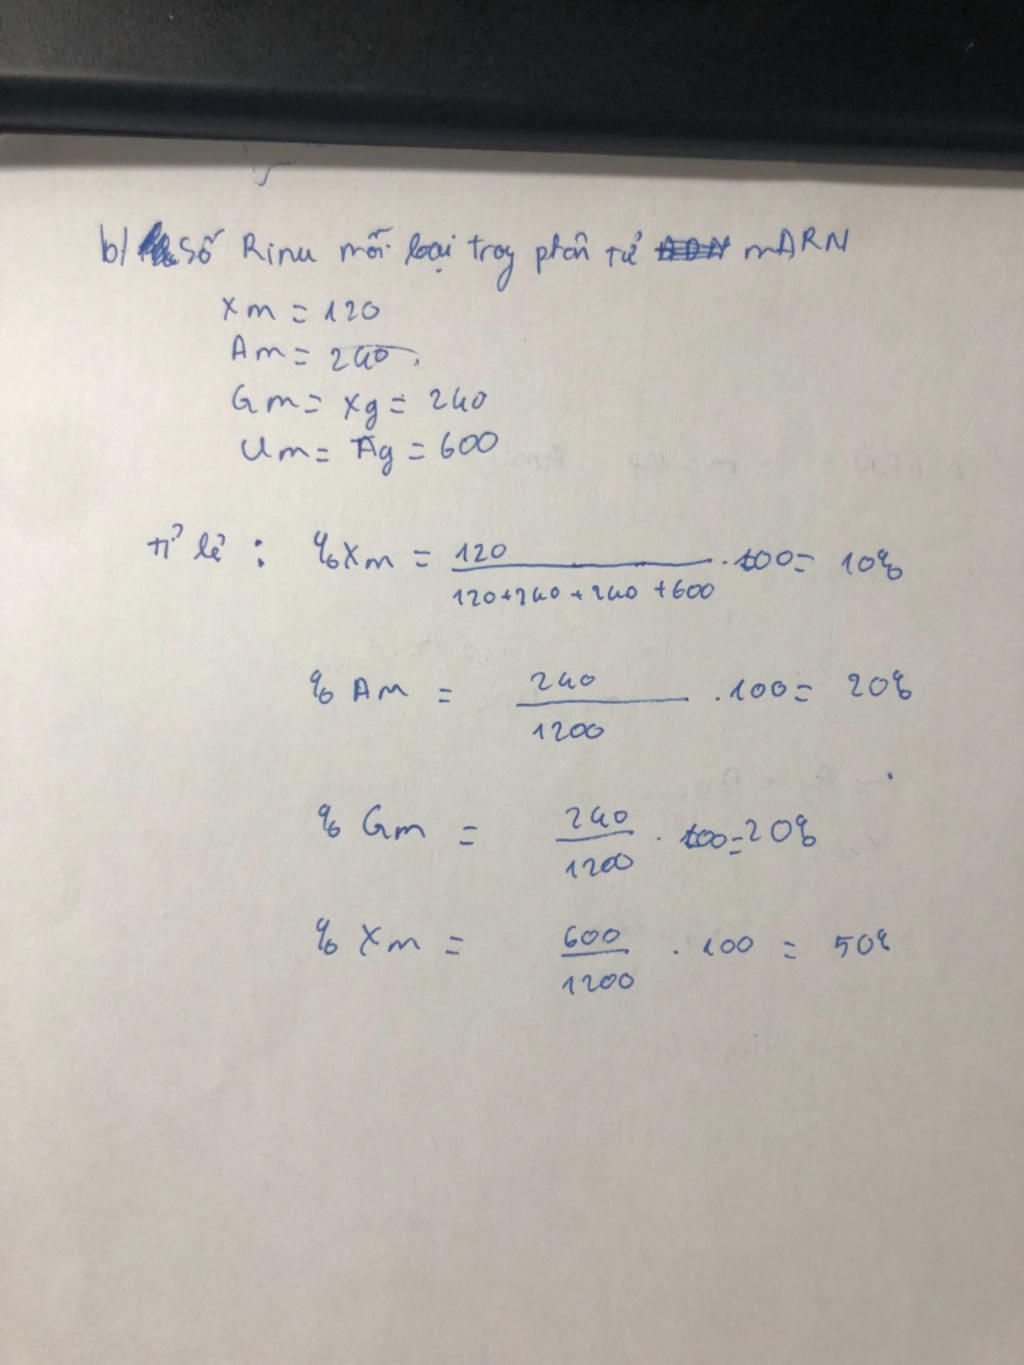 b/ Số Rinu mỗi loại trog phân tử mARN
Xm = 120
Am = 240.
Gm = Xg = 240
Um = Ag = 600
tỉ lệ : %Xm = 120 / 120+240+240+600 . 100 = 10%
% Am = 240 / 1200 . 100 = 20%
% Gm = 240 / 1200 . 100 = 20%
% Xm = 600 / 1200 . 100 = 50%